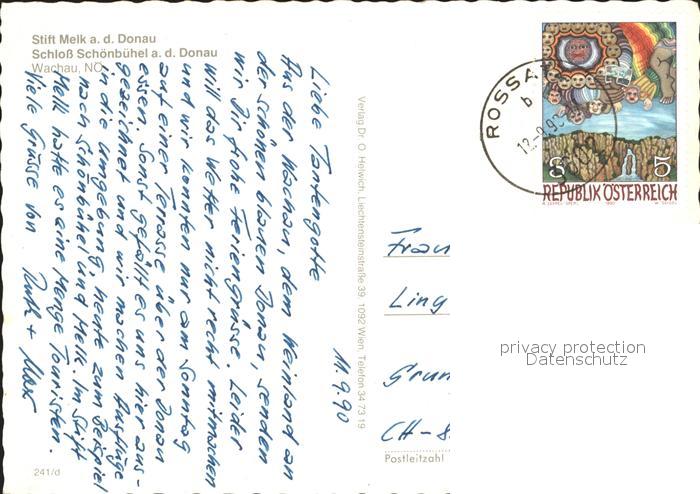 Stift Melk a. d. Donau
Schloß Schönbühel a. d. Donau
Wachau, NÖ
11.9.90
Liebe Tantengotte
Aus der Wachau, dem Weinland an
der schönen blauen Donau, senden
wir Dir frohe Feriengrüsse. Leider
will das Wetter nicht recht mitmachen
und wir konnten nur am Sonntag
auf einer Terrasse über der Donau
essen. Sonst gefällt es uns hier aus-
gezeichnet und wir machen Ausflüge
in die Umgebung, heute zum Beispiel
nach Schönbühel und Melk. Im Stift
Melk hatte es eine Menge Touristen.
Viele Grüsse von Ruth + Max
241/d
Verlag Dr. O. Helwich, Liechtensteinstraße 39, 1092 Wien, Telefon 34 73 19
ROSSA
S 5
REPUBLIK ÖSTERREICH
1990
Frau
Ling
Grun
CH-8
Postleitzahl
privacy protection
Datenschutz